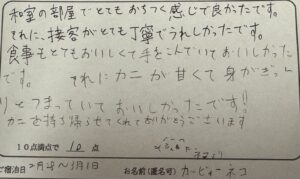 和室の部屋でとてもおちつく感じで良かったです。
それに、接客がとても丁寧でうれしかったです。
食事もとてもおいしくて手をこんでいておいしかった
です。 それにカニが甘くて身がぎっし
りとつまっていておいしかったです!!
カニを持ち帰らせてくれてありがとうございます
10点満点で 10 点
ご宿泊日 2月 日〜3月1日
お名前(匿名可) カービィーネコ